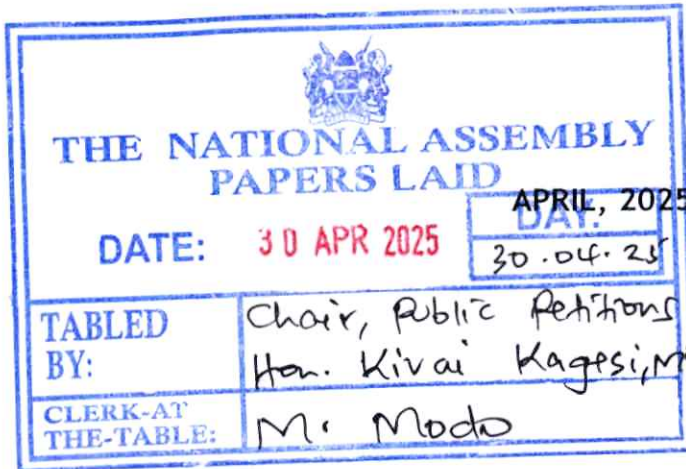 THE NATIONAL ASSEMBLY
PAPERS LAID
APRIL, 2025
DATE: 30 APR 2025 DAY:
30.04.25
TABLED BY: Chair, Public Petitions
Hon. Kivai Kagesi, M
CLERK-AT THE-TABLE: M. Modo